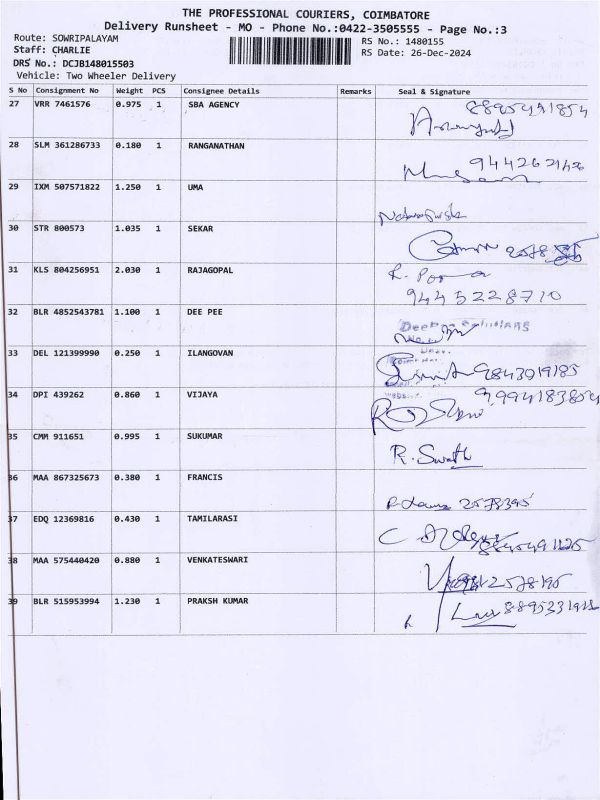 THE PROFESSIONAL COURIERS, COIMBATORE
Delivery Runsheet - MO - Phone No.:0422-3505555 - Page No.:3
Route: SOWRIPALAYAM
RS No.: 1480155
Staff: CHARLIE
RS Date: 26-Dec-2024
DRS No.: DCJB148015503
Vehicle: Two Wheeler Delivery
S No Consignment No Weight PCS Consignee Details Remarks Seal & Signature
27 VRR 7461576 0.975 1 SBA AGENCY
28 SLM 361286733 0.180 1 RANGANATHAN
29 IXM 507571822 1.250 1 UMA
30 STR 800573 1.035 1 SEKAR
31 KLS 804256951 2.030 1 RAJAGOPAL
9445228710
32 BLR 4852543781 1.100 1 DEE PEE
33 DEL 121399990 0.250 1 ILANGOVAN
9843919185
34 DPI 439262 0.860 1 VIJAYA
35 CMM 911651 0.995 1 SUKUMAR
R. Swath
36 MAA 867325673 0.380 1 FRANCIS
2578395
37 EDQ 12369816 0.430 1 TAMILARASI
38 MAA 575440420 0.880 1 VENKATESWARI
2578195
39 BLR 515953994 1.230 1 PRAKSH KUMAR